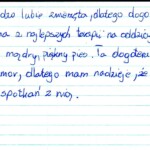 dzo lubię zwierzęta, dlatego dogo
na z najlepszych terapii na oddziale
mądry, piękny pies. Ta dogoter
mor, dlatego mam nadzieję, że
spotkań z nią.